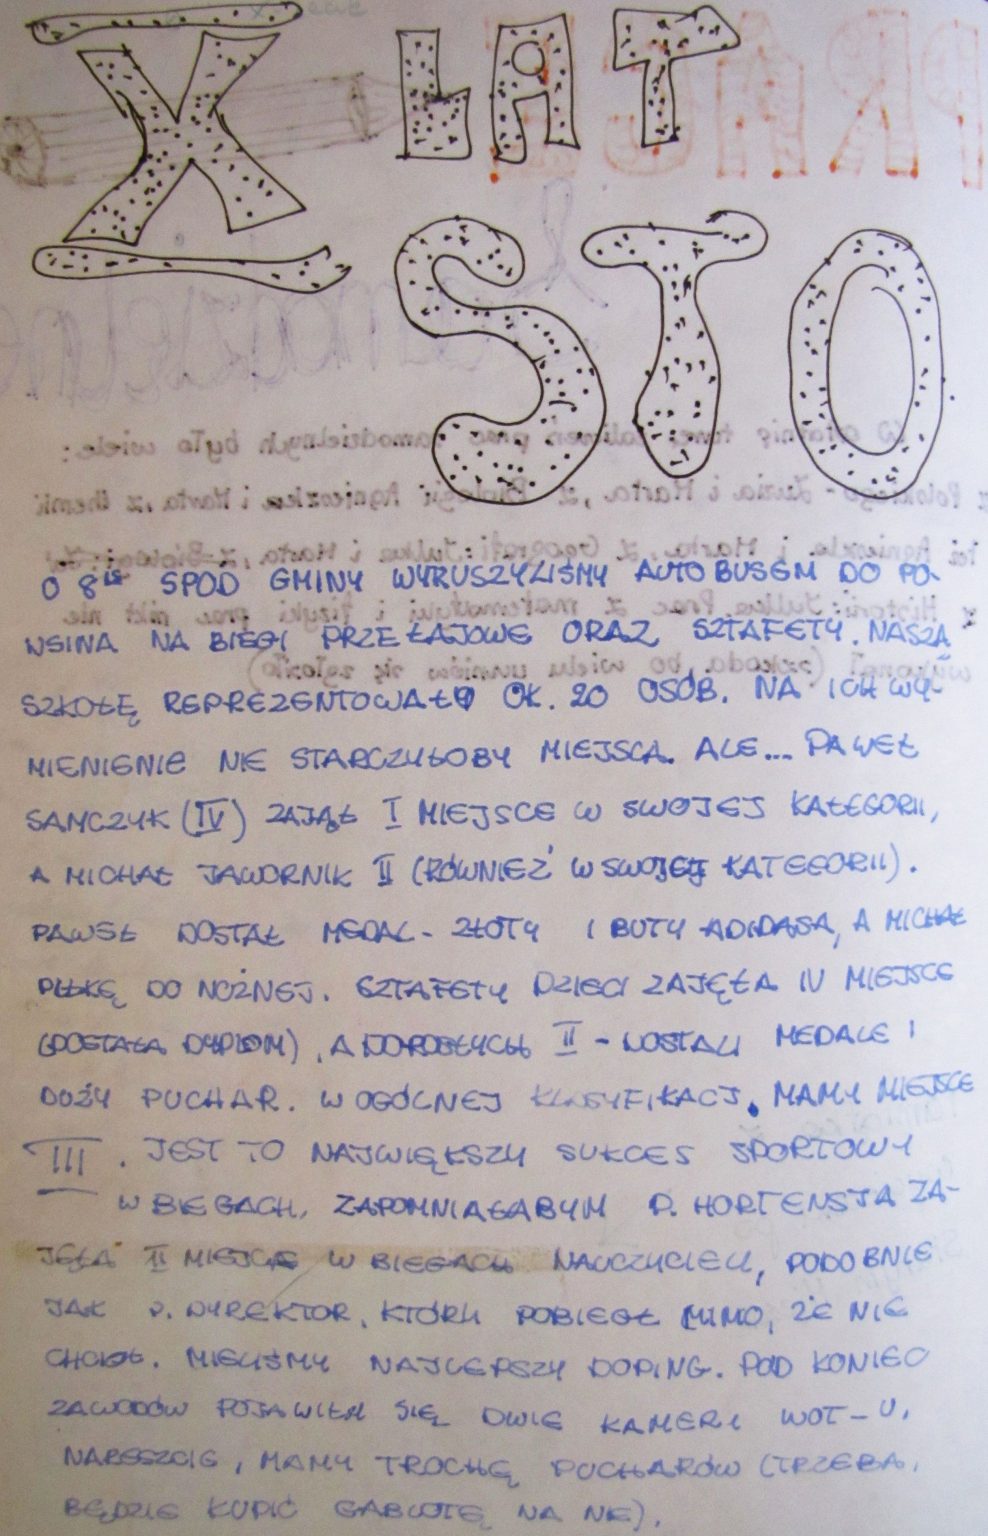 X LAT
STO
O 8¹⁵ SPOD GMINY WYRUSZYLIŚMY AUTOBUSEM DO PO-
WSINA NA BIEGI PRZEŁAJOWE ORAZ SZTAFETY. NASZĄ
SZKOŁĘ REPREZENTOWAŁO OK. 20 OSÓB. NA ICH WY-
MIENIENIE NIE STARCZYŁOBY MIEJSCA. ALE... PAWEŁ
SAMCZYK (IV) ZAJĄŁ I MIEJSCE W SWOJEJ KATEGORII,
A MICHAŁ JAWORNIK II (RÓWNIEŻ W SWOJEJ KATEGORII).
PAWEŁ DOSTAŁ MEDAL - ZŁOTY I BUTY ADIDASA, A MICHAŁ
PIŁKĘ DO NOŻNEJ. SZTAFETY DZIECI ZAJĘŁA IV MIEJSCE
(DOSTAŁA DYPLOM), A DOROSŁYCH II - DOSTALI MEDALE I
DUŻY PUCHAR. W OGÓLNEJ KLASYFIKACJ. MAMY MIEJSCE
III. JEST TO NAJWIĘKSZY SUKCES SPORTOWY
W BIEGACH, ZAPOMNIAŁABYM P. HORTENSJA ZA-
JĘŁA II MIEJSCE W BIEGACH NAUCZYCIELI, PODOBNIE
JAK P. DYREKTOR, KTÓRY POBIEGŁ MIMO, ŻE NIE
CHCIAŁ. MIELIŚMY NAJLEPSZY DOPING. POD KONIEC
ZAWODÓW POJAWIŁY SIĘ DWIE KAMERY WOT-U.
NARESZCIE, MAMY TROCHĘ PUCHARÓW (TRZEBA
BĘDZIE KUPIĆ GABLOTĘ NA NIE).